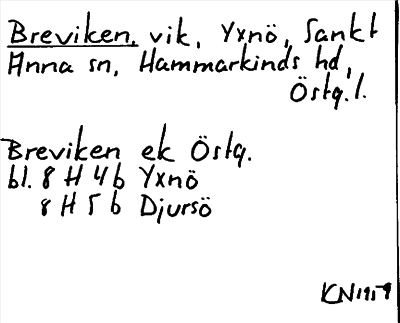 Breviken, vik, Yxnö, Sankt
Anna sn, Hammarkinds hd,
Östg.l.
Breviken ek Östg.
bl. 8 H 4 b Yxnö
8 H 5 b Djursö